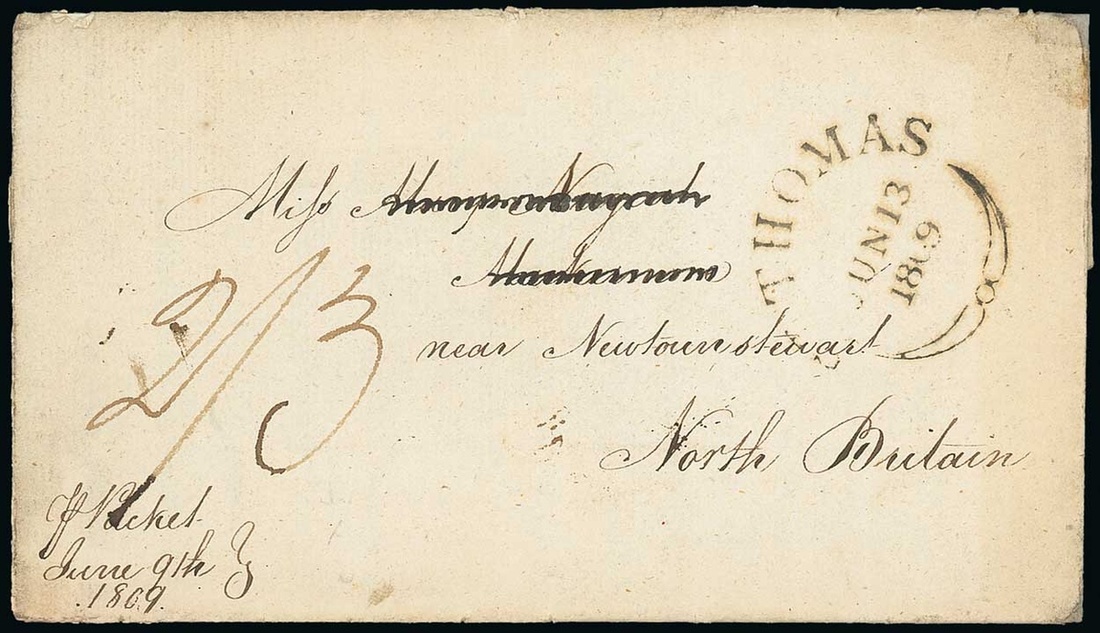 THOMAS
JUN 13
1809
Miss
near Newtownstewart
North Britain
2/3
P Packet
June 9th
1809.